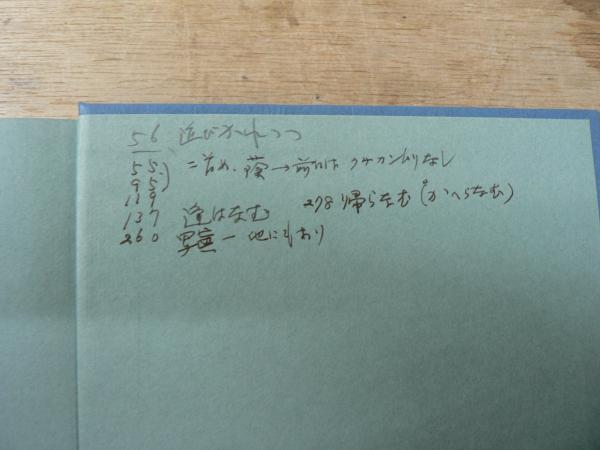 56 並びかれつつ
55
95 二首め、葵→前には クサカンムリなし
119
137 逢はなむ 278 帰らなむ(かへらなむ)
260 — 他にもあり